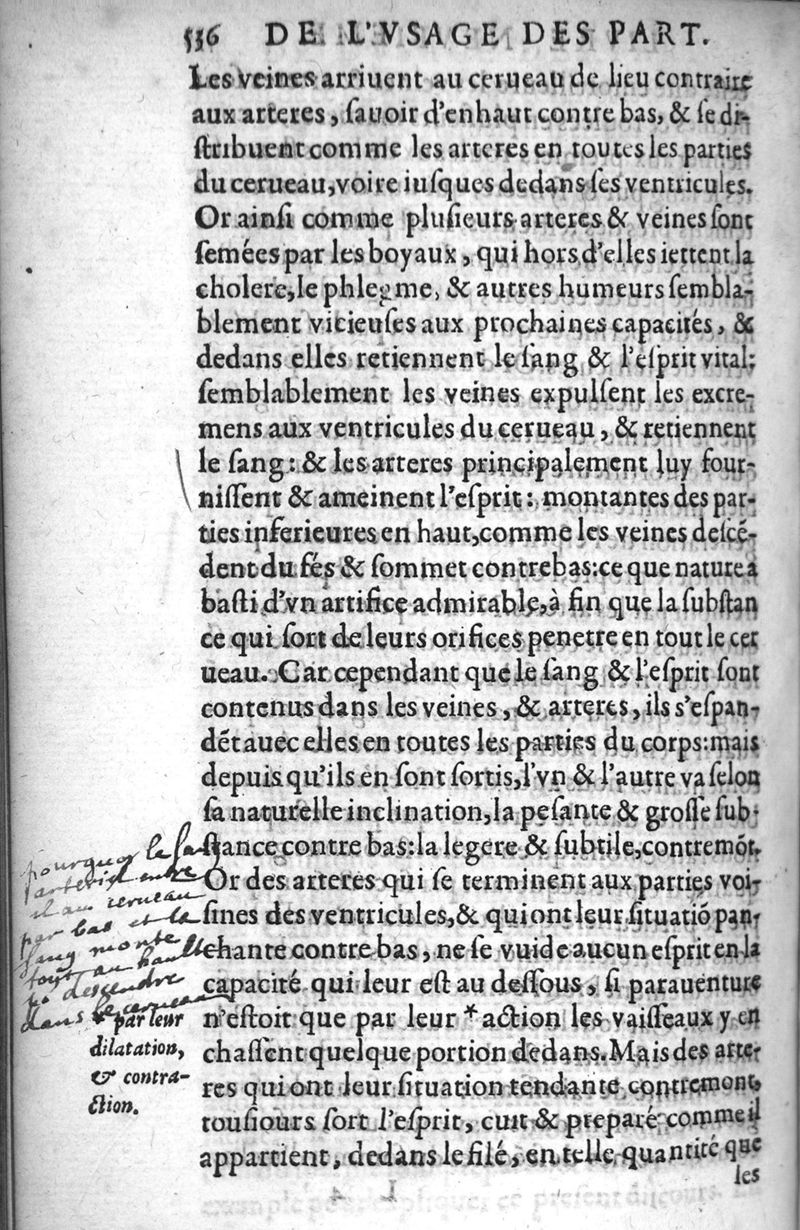 536 DE L'VSAGE DES PART.
Les veines arriuent au cerueau de lieu contraire
aux arteres, ſauoir d'enhaut contre bas, & ſe di-
ſtribuent comme les arteres en toutes les parties
du cerueau, voire iuſques dedans ſes ventricules.
Or ainſi comme pluſieurs arteres & veines ſont
ſemées par les boyaux, qui hors d'elles iettent la
cholere, le phlegme, & autres humeurs ſembla-
blement vitieuſes aux prochaines capacités, &
dedans elles retiennent le ſang & l'eſprit vital:
ſemblablement les veines expulſent les excre-
mens aux ventricules du cerueau, & retiennent
le ſang: & les arteres principalement luy four-
niſſent & ameinent l'eſprit: montantes des par-
ties inferieures en haut, comme les veines deſcé-
dent du fés & ſommet contrebas: ce que nature a
baſti d'vn artifice admirable, à fin que la ſubſtan
ce qui ſort de leurs orifices penetre en tout le cer
ueau. Car cependant que le ſang & l'eſprit ſont
contenus dans les veines, & arteres, ils s'eſpan-
dét auec elles en toutes les parties du corps: mais
depuis qu'ils en ſont ſortis, l'vn & l'autre va ſelon
ſa naturelle inclination, la peſante & groſſe ſub-
ſtance contre bas: la legere & ſubtile, contremót.
Or des arteres qui ſe terminent aux parties voi-
ſines des ventricules, & qui ont leur ſituatió pan-
chante contre bas, ne ſe vuide aucun eſprit en la
capacité qui leur eſt au deſſous, ſi parauenture
n'eſtoit que par leur * action les vaiſſeaux y en
chaſſent quelque portion dedans. Mais des arte-
res qui ont leur ſituation tendante contremont,
touſiours ſort l'eſprit, cuit & preparé comme il
appartient, dedans le filé, en telle quantité que
les
pourquoy le ſa
arteriel entre
il au cerueau
par bas et le
ſang monte
au hault
descendre
dans le cerueau
* par leur
dilatation,
& contra-
ction.